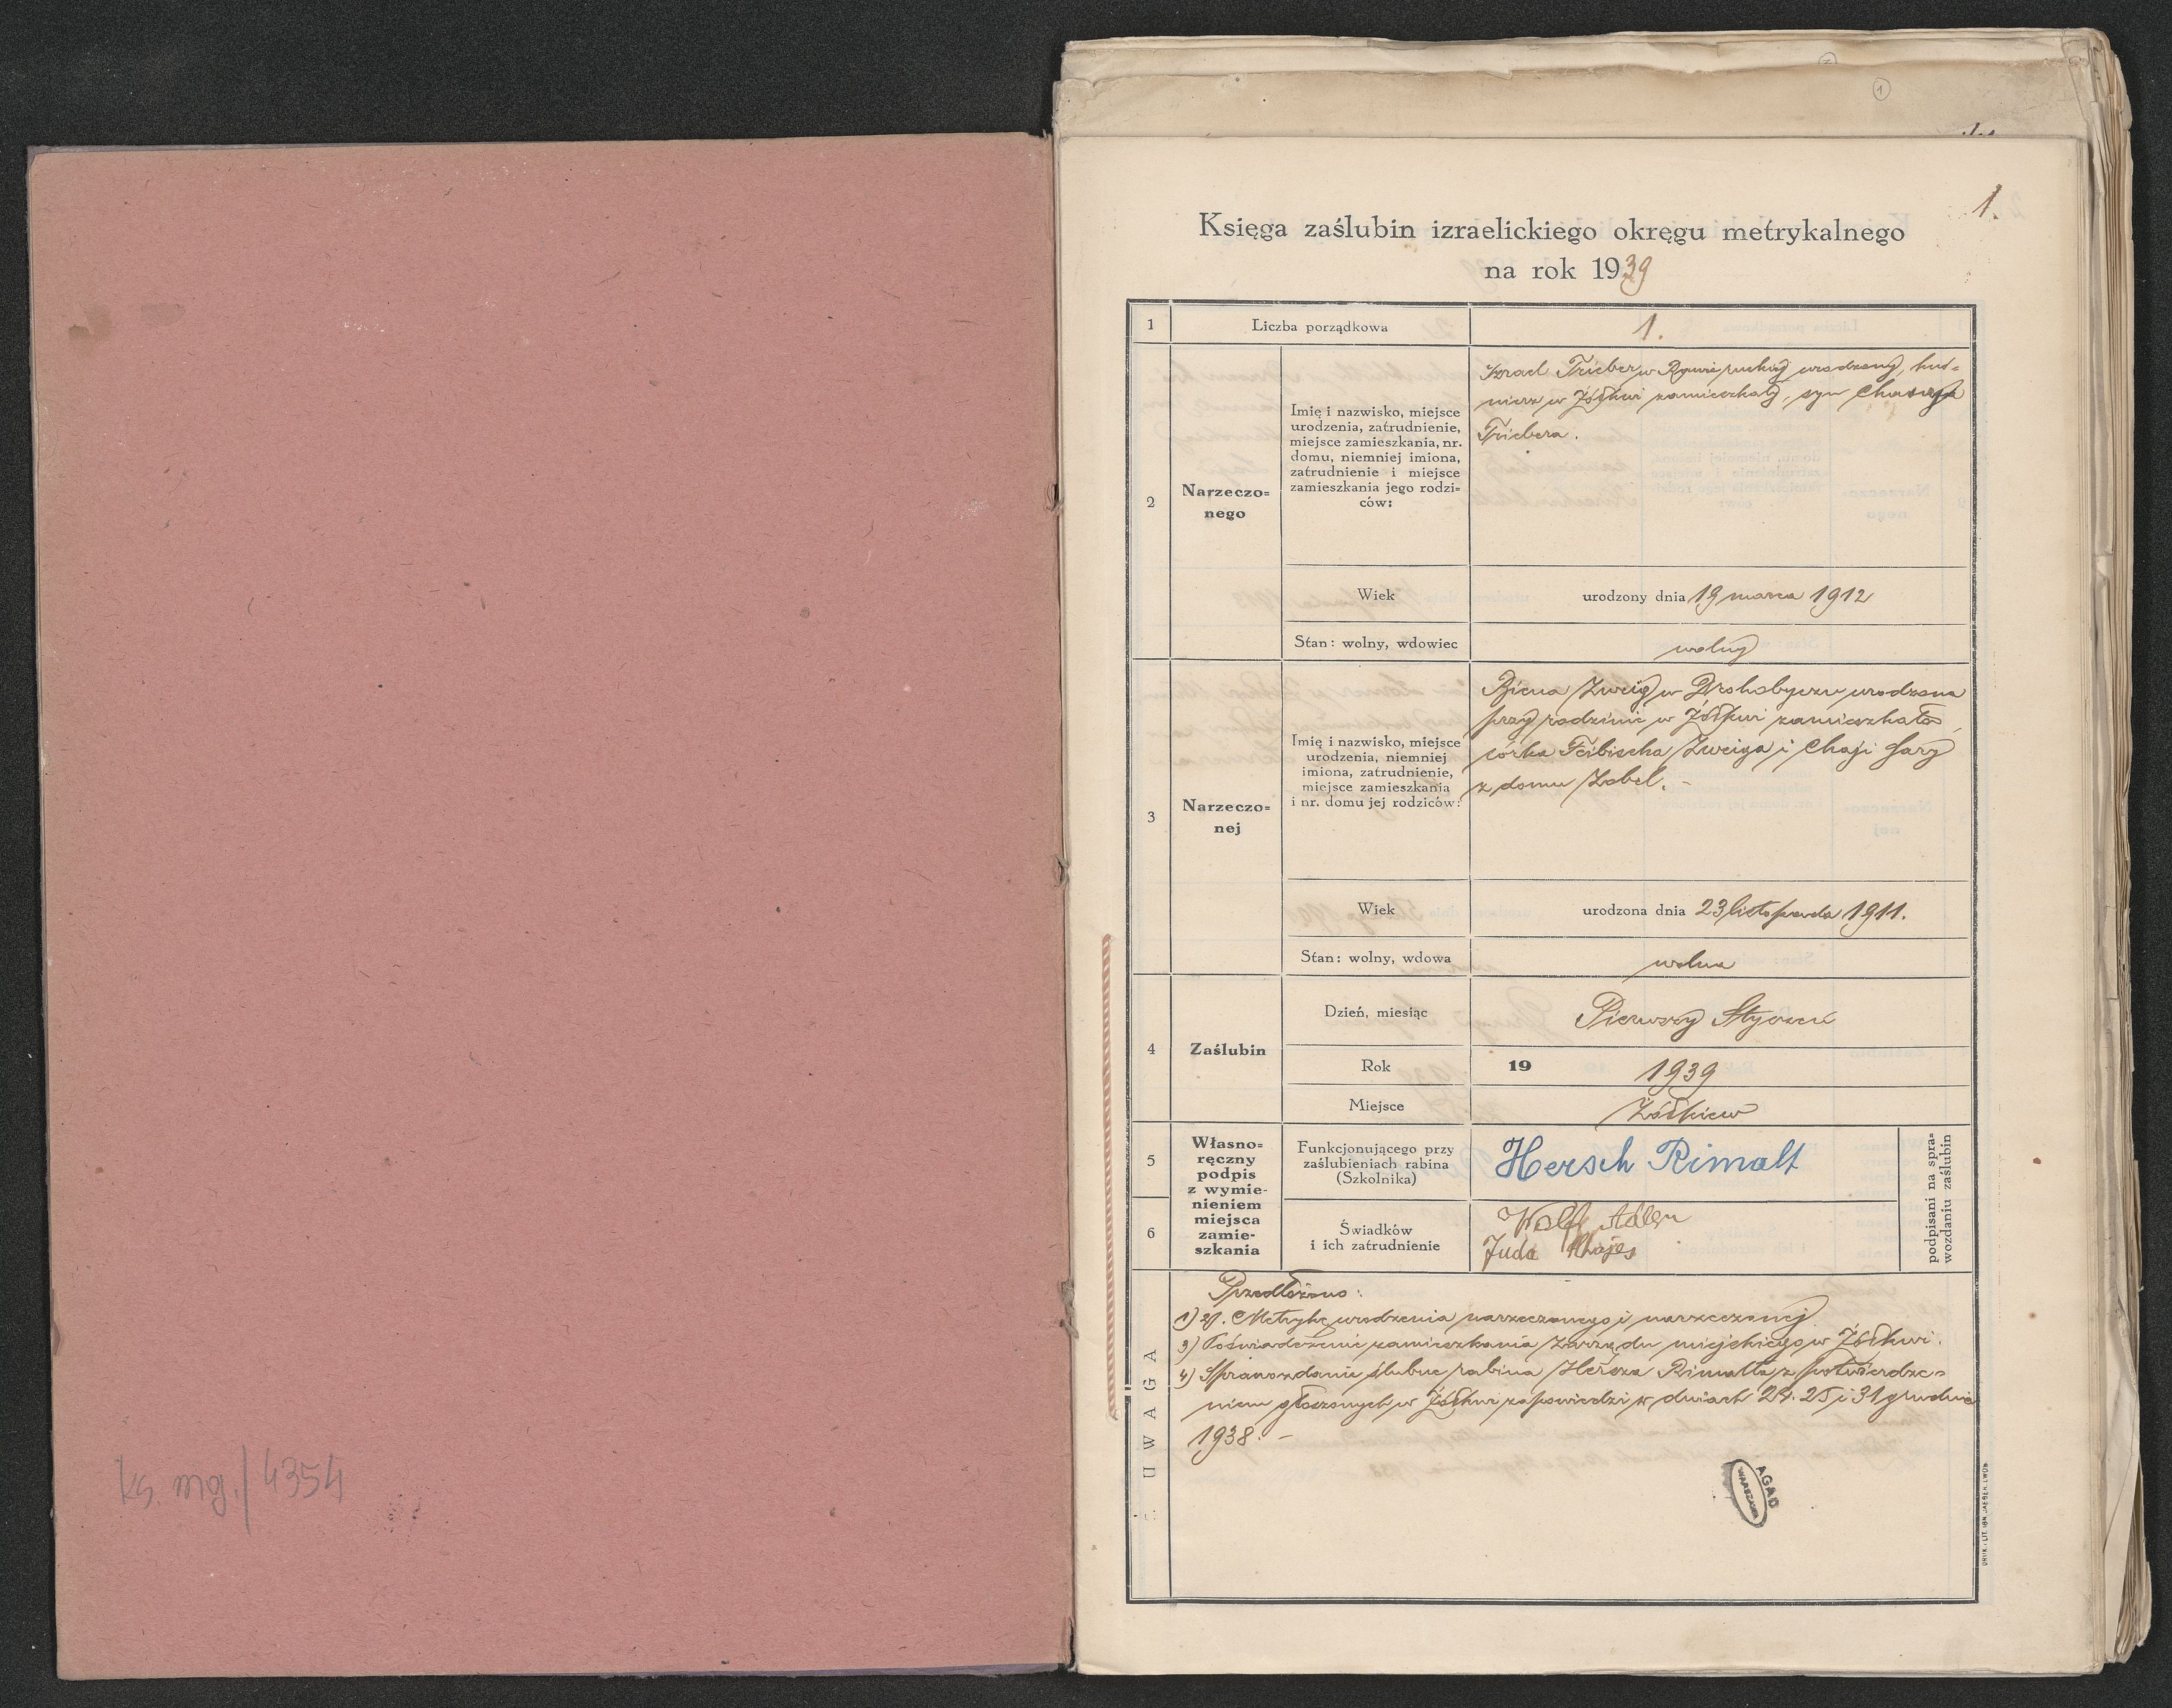 1
1.
Księga zaślubin izraelickiego okręgu metrykalnego
na rok 1939
1
Liczba porządkowa
1.
2
Narzeczo=
nego
Imię i nazwisko, miejsce
urodzenia, zatrudnienie,
miejsce zamieszkania, nr.
domu, niemniej imiona,
zatrudnienie i miejsce
zamieszkania jego rodzi=
ców:
Izrael Trieber w Rawie ruskiej urodzony, kuś=
nierz w Żółkwi zamieszkały, syn
Triebera.
Wiek
urodzony dnia 19 marca 1912
Stan: wolny, wdowiec
wolny
3
Narzeczo=
nej
Imię i nazwisko, miejsce
urodzenia, niemniej
imiona, zatrudnienie,
miejsce zamieszkania
i nr. domu jej rodziców:
Zweig w Drohobyczu urodzona
przy rodzinie w Żółkwi zamieszkała
córka Feibischa Zweiga i Chaji Sary
z domu Zobel. -
Wiek
urodzona dnia 23 listopada 1911.
Stan: wolny, wdowa
wolna
4
Zaślubin
Dzień, miesiąc
Pierwszy Styczeń
Rok
19 1939
Miejsce
Żółkiew
5
6
Własno=
ręczny
podpis
z wymie-
nieniem
miejsca
zamie-
szkania
Funkcjonującego przy
zaślubieniach rabina
(Szkolnika)
Hersch Rimalt
Świadków
i ich zatrudnienie
Wolf Adler
Juda Chajes
podpisani na spra-
wozdaniu zaślubin
UWAGA
Przedłożono:
1) 2). Metrykę urodzenia narzeczonego i narzeczonej
3) Poświadczenie zamieszkania Zarządu miejskiego w Żółkwi.
4) Sprawozdanie ślubne rabina Hersza Rimalta z potwierdze=
niem głoszonych w Żółkwi zapowiedzi w dniach 24. 25 i 31 grudnia
1938. -
AGAD
WARSZAWA
DRUK. i LIT. IGN. JAEGER, LWÓW
ks. mg. / 4354